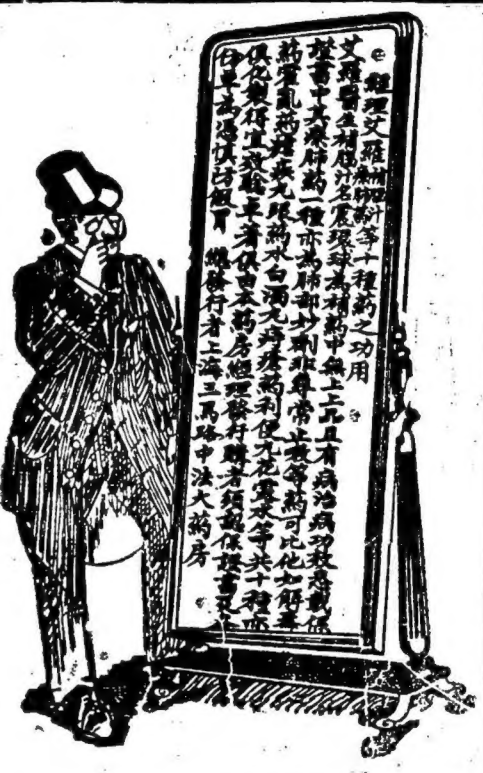 經理艾羅補腦汁療肺藥等十種藥之功用
艾羅醫生補腦汁名震環球為補藥中無上上品且有病治病功效悉載保
證書中其療肺藥一種亦為肺部妙劑非尋常止咳等藥可比他如解毒
藥霍亂藥瘧疾丸眼藥水白濁丸疥瘡藥利便丸花露水等共十種亦
俱化製得宜效驗卓著俱由本藥房經理發行購者須認保證書及
為憑慎防假冒 總發行者上海三馬路中法大藥房